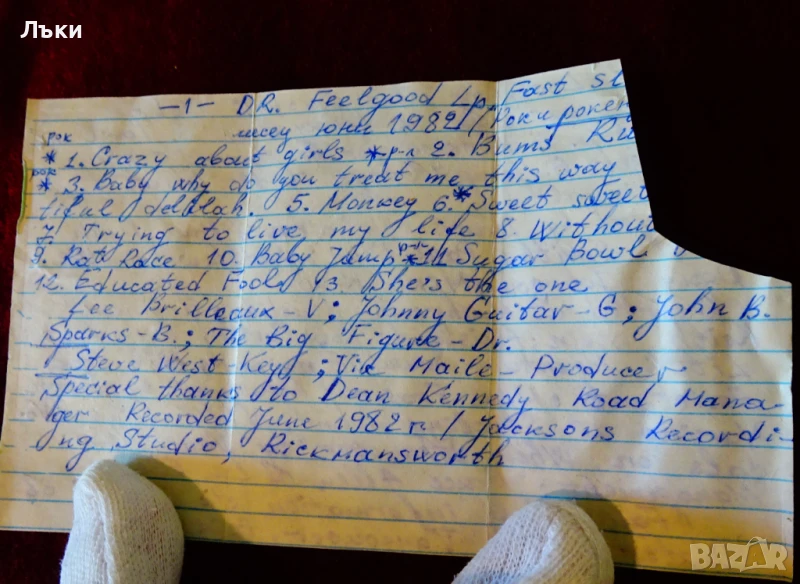 Лъки
-1- DR. Feelgood Lp. Fast st
рок месец юни 1982 / Рок
* 1. Crazy about girls * р-л 2. Bums Ru
* 3. Baby why do you treat me this way
tiful delilah. 5. Monkey 6. * Sweet sweet
7. Trying to live my life 8. Without
9. Rat Race 10. Baby Jump * 11 Sugar Bowl
12. Educated Fool 13. She's the one
Lee Brilleaux - V; Johnny Guitar - G; John B.
Sparks - B.; The Big Figure - Dr.
Steve West - Key; Vic Maile - Producer
Special thanks to Dean Kennedy Road Mana-
ger Recorded June 1982 г. / Jacksons Recordi-
ng Studio, Rickmansworth
BAZAR
bg